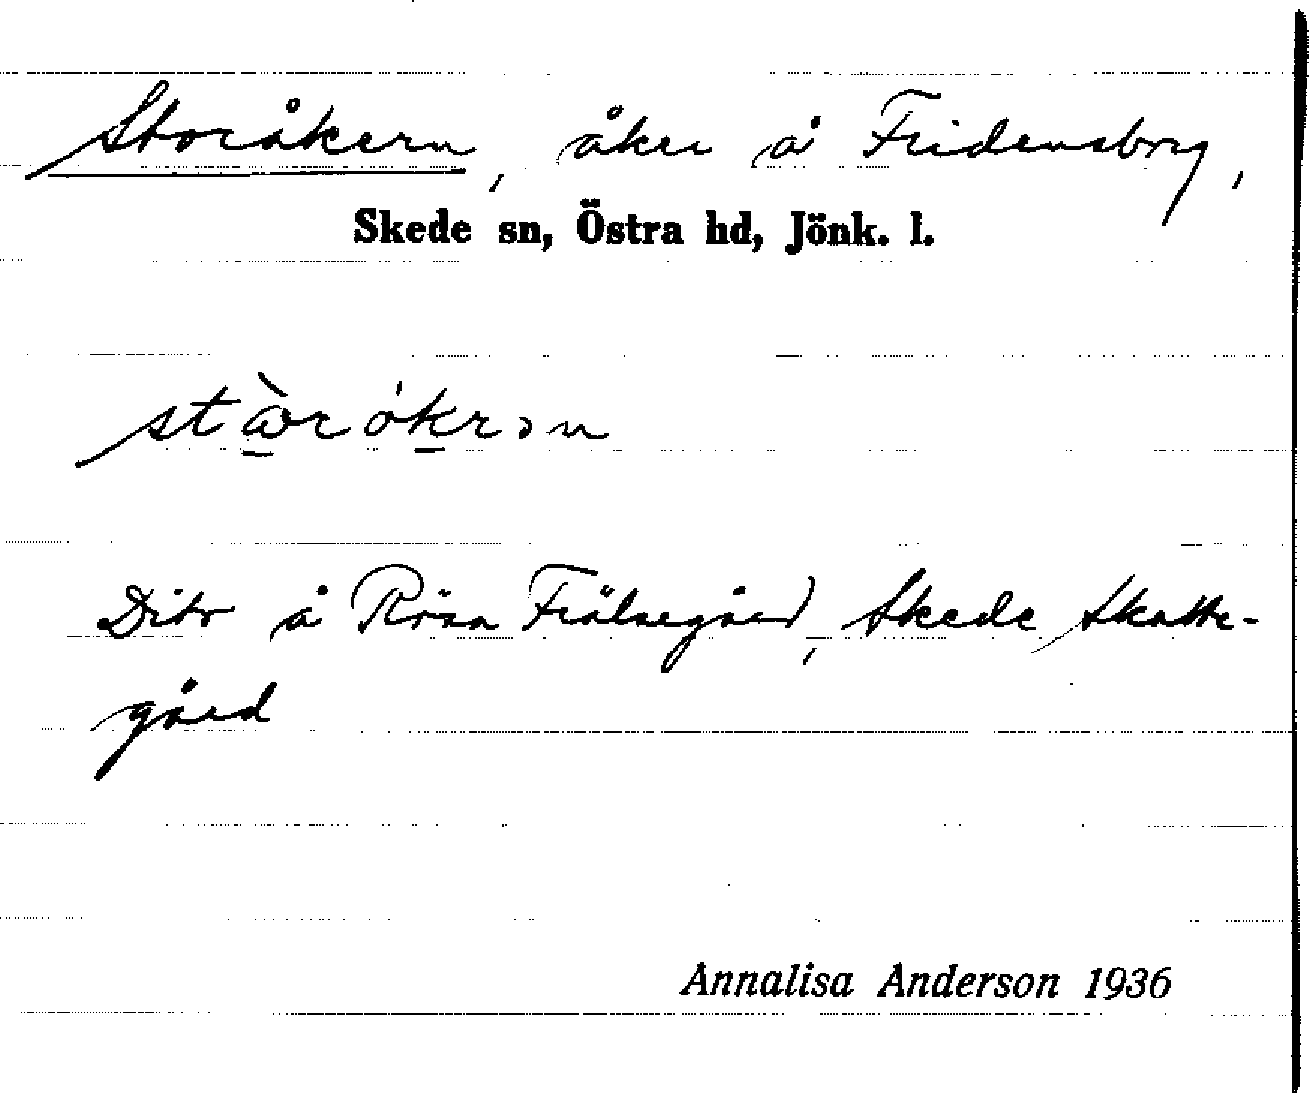 Storåkern, åker å Fridensborg,
Skede sn, Östra hd, Jönk. l.
Dito å Rösa Frälsegård, Skede Skatte-
gård
Annalisa Anderson 1936